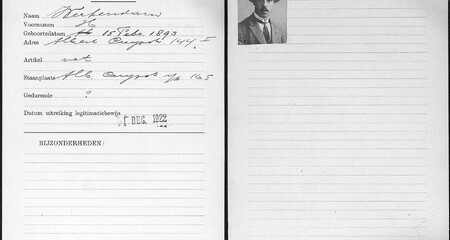 Naam Werkendam
Voornamen H
Geboortedatum 15 Febr. 1893
Adres Albert Cuypstr 144 I
Artikel vet
Staanplaats Alb. Cuypstr 165
Gedurende ?
Datum uitreiking legitimatiebewijs DEC. 1922
BIJZONDERHEDEN: